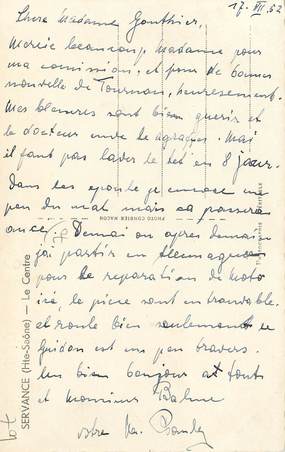 17. VII. 52
Chere Madame Gonthier,
Mercie beaucoup, Madame pour
ma comission, et pour de bonnes
nouvelle de Tournon, heuresement.
Mes blesures sont bien guerir et
le docteur enleve le agrafes. Mai
il faut pas laver le tét en 8 jour.
Dans les epoule je encore un
peu du mal mais ça passera
once. Demai ou apres demain
jai partir en
pour le reparation de moto
le piece sont en
et roule bien seulement le
Guidon est un peu travers.
un bien bonjour at tout
et Monsieur Balme
votre
SERVANCE (Hte-Saône) — Le Centre
PHOTO COMBIER MACON